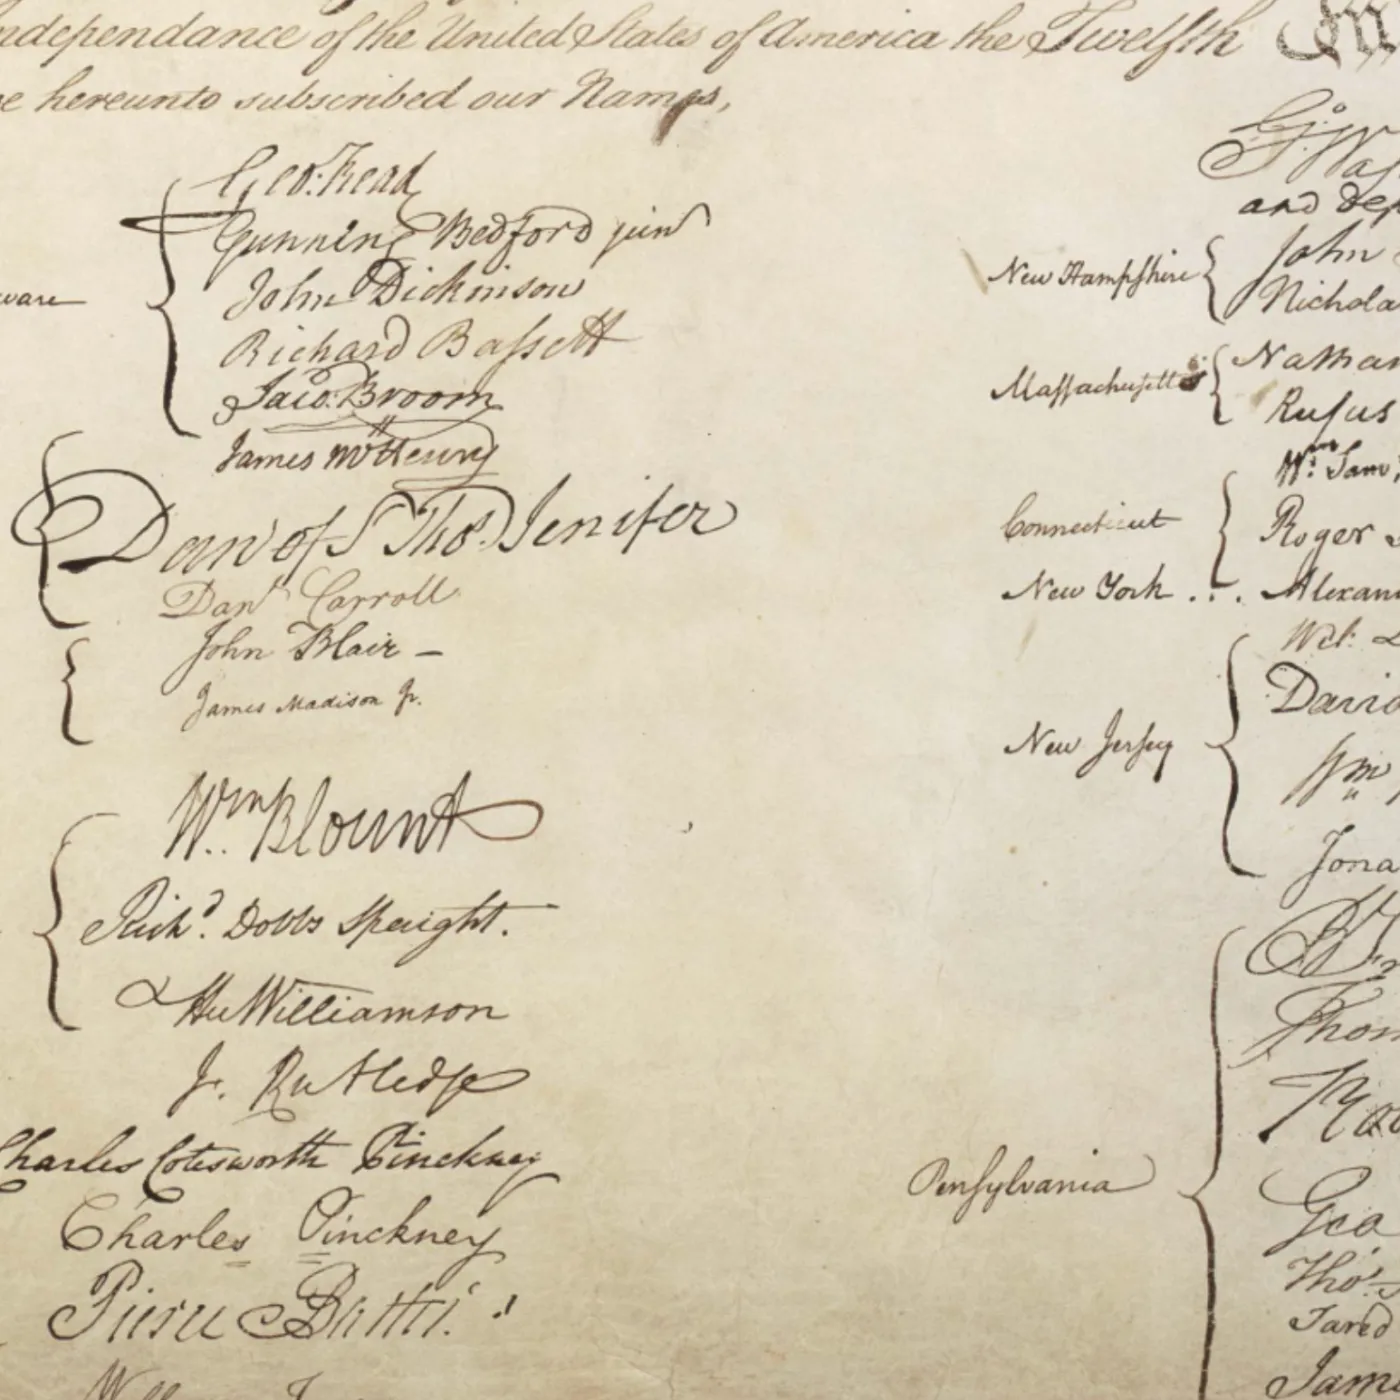 ndependance of the United States of America the Twelfth
e hereunto subscribed our Names,
ware
Geo: Read
Gunning Bedford jun
John Dickinson
Richard Bassett
Jaco: Broom
James McHenry
Dan of St Thos. Jenifer
Danl Carroll
John Blair –
James Madison Jr.
Wm Blount
Richd. Dobbs Spaight.
Hu Williamson
J. Rutledge
Charles Cotesworth Pinckney
Charles Pinckney
Pierce Butler.
G. Was
and dep
New Hampshire
John
Nichola
Massachusetts
Nathan
Rufus
Connecticut
Wm. Sam.
Roger
New York . . .
Alexan
New Jersey
Wil:
David
Wm
Jona
Pensylvania
B
Thom
Geo
Thos.
Jared
Jam